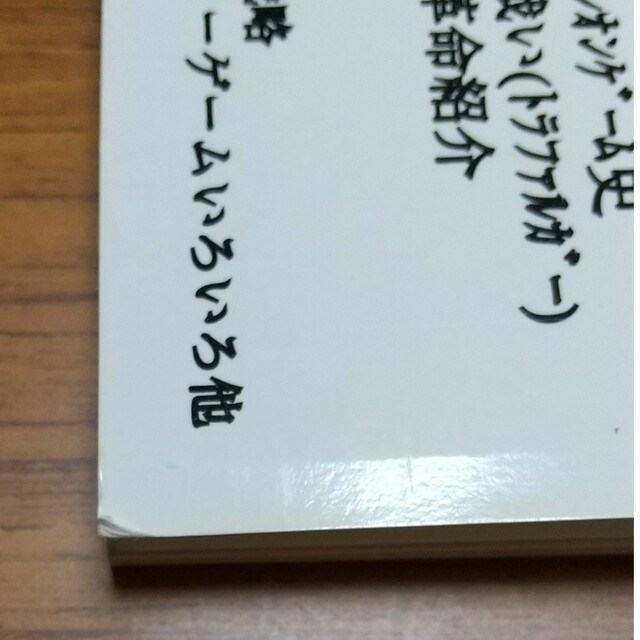 ｵﾝｹﾞｰﾑ史
戦い(ﾄﾗﾌｧﾙｶﾞｰ)
革命紹介
略
ーゲームいろいろ他